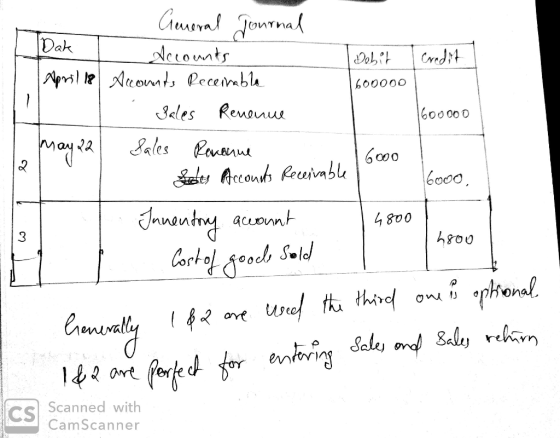 General Journal
Date Accounts Debit Credit
1 April 18 Accounts Receivable 600000
Sales Revenue 600000
2 May 22 Sales Revenue 6000
Accounts Receivable 6000.
3 Inventory account 4800
Cost of goods Sold 4800
Generally 1 & 2 are used the third one is optional.
1 & 2 are perfect for entering Sales and Sales return
CS Scanned with
CamScanner